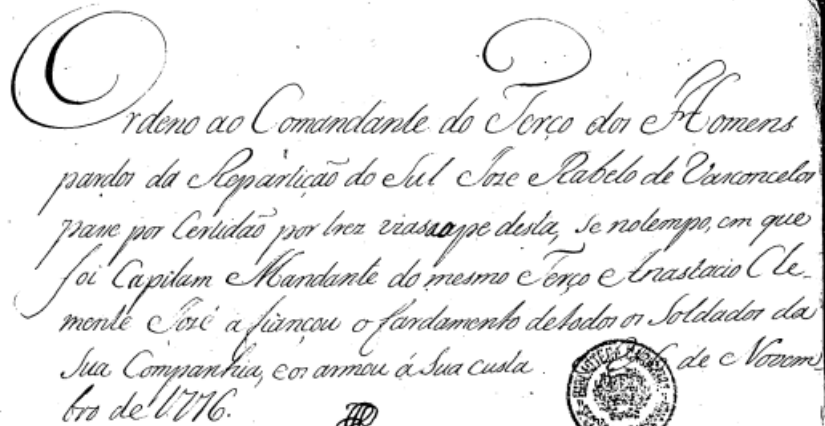 Ordeno ao Comandante do Terço dos Homens
pardos da Repartição do Sul Joze Rabelo de Vasconcelos
passe por Certidão por trez vias ao pe desta, se no tempo, em que
foi Capitam Mandante do mesmo Terço Anastacio Cle-
mente José afiançou o fardamento de todos os Soldados da
Sua Companhia, e os armou á Sua custa. de Novem-
bro de 1776.